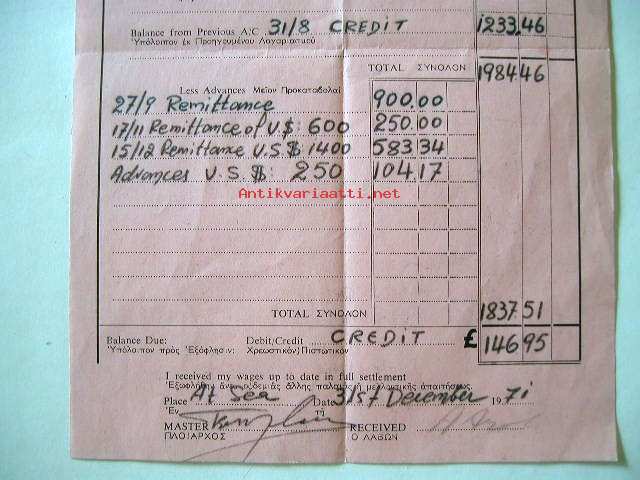 Balance from Previous A/C 31/8 CREDIT 1233.46
Ὑπόλοιπον ἐκ Προηγουμένου Λογαριασμοῦ
TOTAL ΣΥΝΟΛΟΝ 1984.46
Less Advances Μεῖον Προκαταβολαί
27/9 Remittance 900.00
17/11 Remittance of U.S: 600 250.00
15/12 Remittance U.S $ 1400 583 34
Advances U.S. $: 250 104 17
Antikvariaatti.net
TOTAL ΣΥΝΟΛΟΝ 1837.51
Balance Due: Debit/Credit CREDIT £ 146 95
Ὑπόλοιπον πρὸς Ἐξόφλησιν: Χρεωστικὸν/Πιστωτικὸν
I received my wages up to date in full settlement
Ἐξωφλήθην ἄνευ οὐδεμιᾶς ἄλλης παλαιᾶς ἢ μελλοντικῆς ἀπαιτήσεως.
Place At Sea Date 31st December 1971
Ἐν τῇ
MASTER RECEIVED
ΠΛΟΙΑΡΧΟΣ Ο ΛΑΒΩΝ